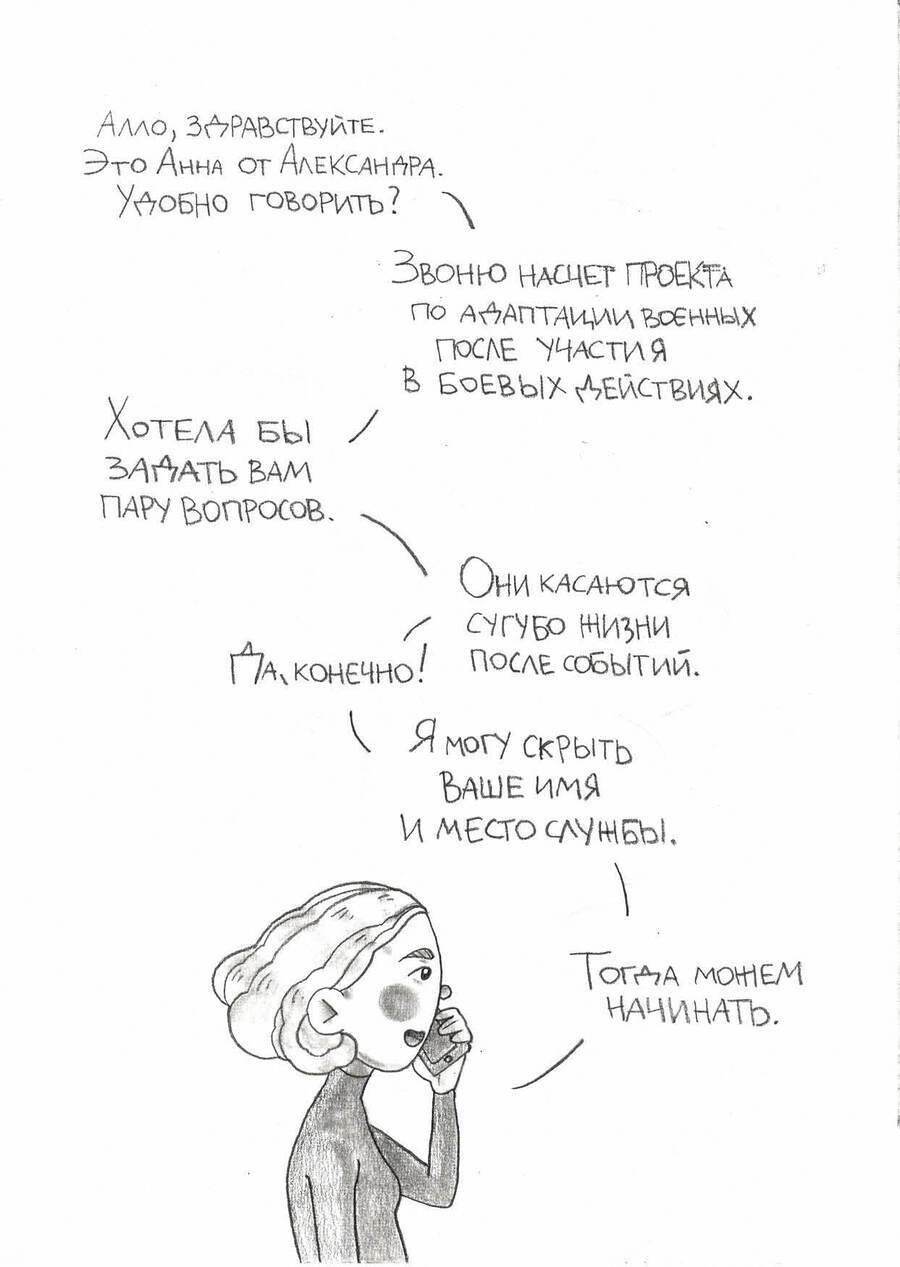 Алло, здравствуйте.
Это Анна от Александра.
Удобно говорить?
Звоню насчет проекта
по адаптации военных
после участия
в боевых действиях.
Хотела бы
задать вам
пару вопросов.
Они касаются
сугубо жизни
после событий.
Да, конечно!
Я могу скрыть
ваше имя
и место службы.
Тогда можем
начинать.